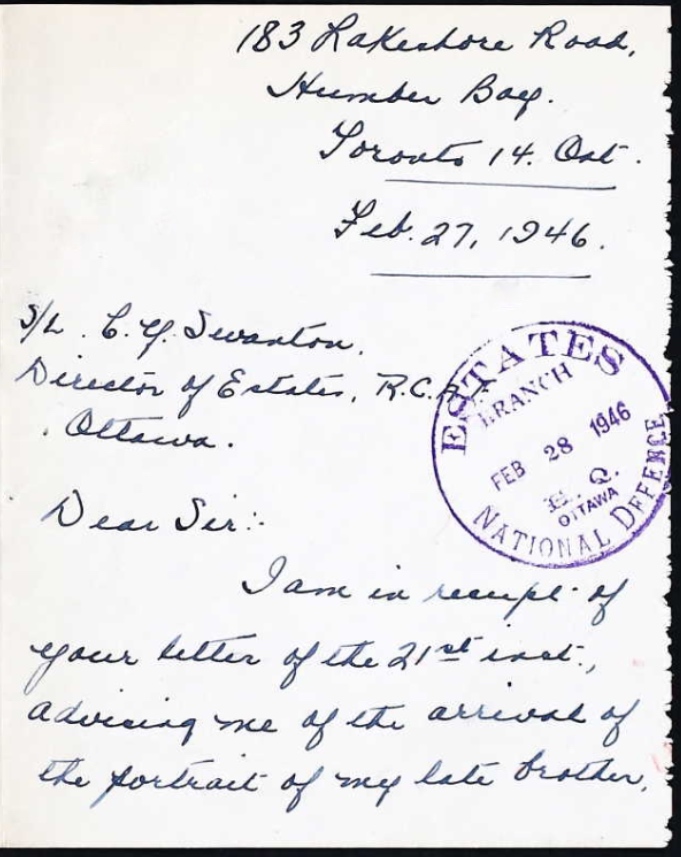 183 Lakeshore Road,
Humber Bay.
Toronto 14. Ont.
Feb. 27, 1946.
S/L. C. Y. Swanton,
Director of Estates, R.C.A.F.
Ottawa.
ESTATES
BRANCH
FEB 28 1946
H. Q.
OTTAWA
NATIONAL DEFENCE
Dear Sir:-
I am in receipt of
your letter of the 21st inst.,
advising me of the arrival of
the portrait of my late brother,